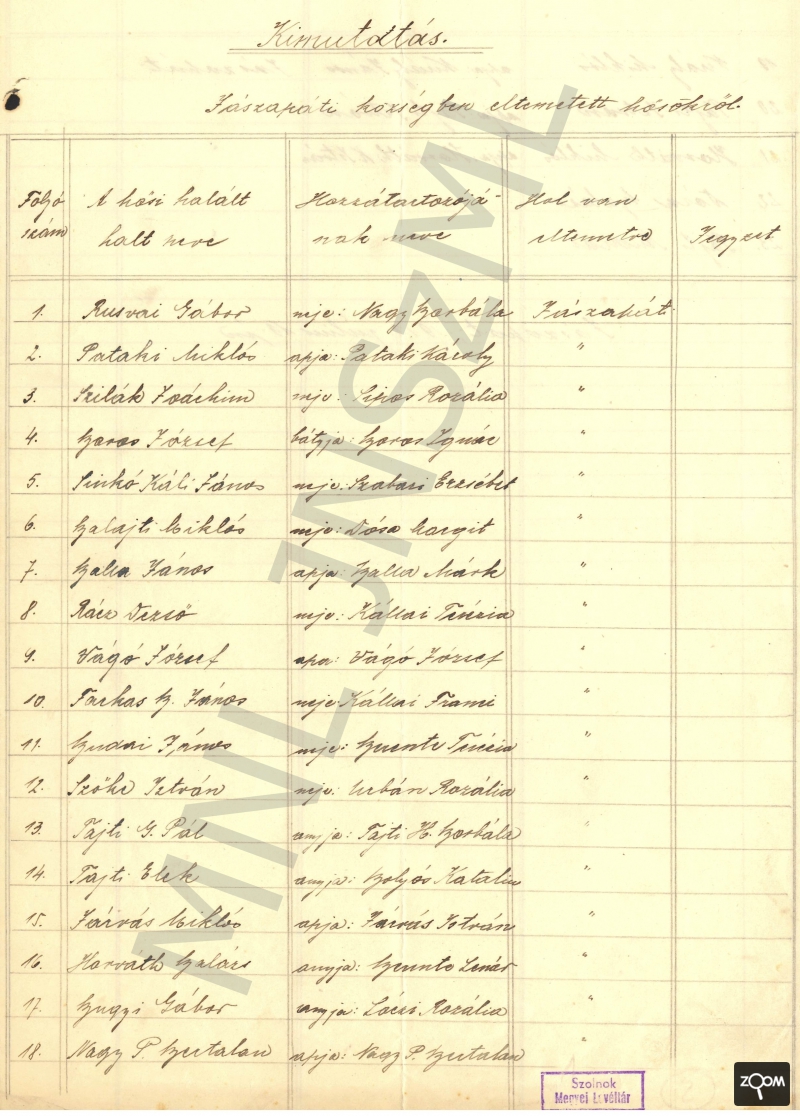 Kimutatás.
Jászapáti községben eltemetett hősökről.
Folyó szám | A hősi halált halt neve | Hozzátartozójának neve | Hol van eltemetve | Jegyzet
1. Rusvai Gábor neje: Nagy Borbála Jászapáti
2. Pataki Miklós apja: Pataki Károly "
3. Szilák Joáchim neje: Sipos Rozália "
4. Baros József bátyja: Baros Ignác "
5. Sinkó Káli János neje: Szabari Erzsébet "
6. Balajti Miklós neje: Dósa Margit "
7. Balla János apja: Balla Márk "
8. Rácz Dezső neje: Kállai Terézia "
9. Vágó József apa: Vágó József "
10. Farkas B. János neje Kállai Franci "
11. Budai János neje: Bente Terézia "
12. Szőke István neje: Urbán Rozália "
13. Tajti G. Pál anyja: Tajti H. Borbála "
14. Tajti Elek anyja: Bolyós Katalin "
15. Járvás Miklós apja: Járvás István "
16. Horváth Balázs anyja: "
17. Bugyi Gábor anyja: Lóczi Rozália "
18. Nagy P. Bertalan apja: Nagy P. Bertalan "
MNL JNSZML
Szolnok
Megyei Levéltár
ZOOM